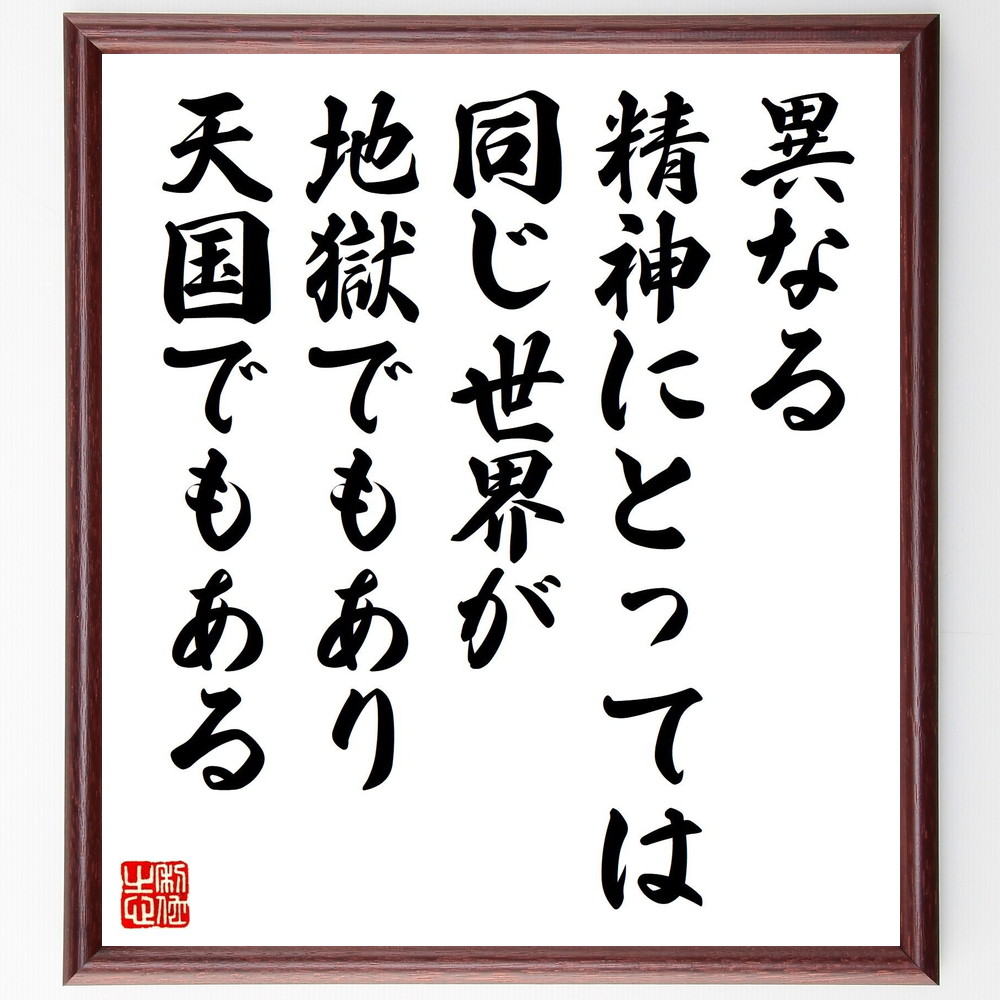 異なる
精神にとっては
同じ世界が
地獄でもあり
天国でもある